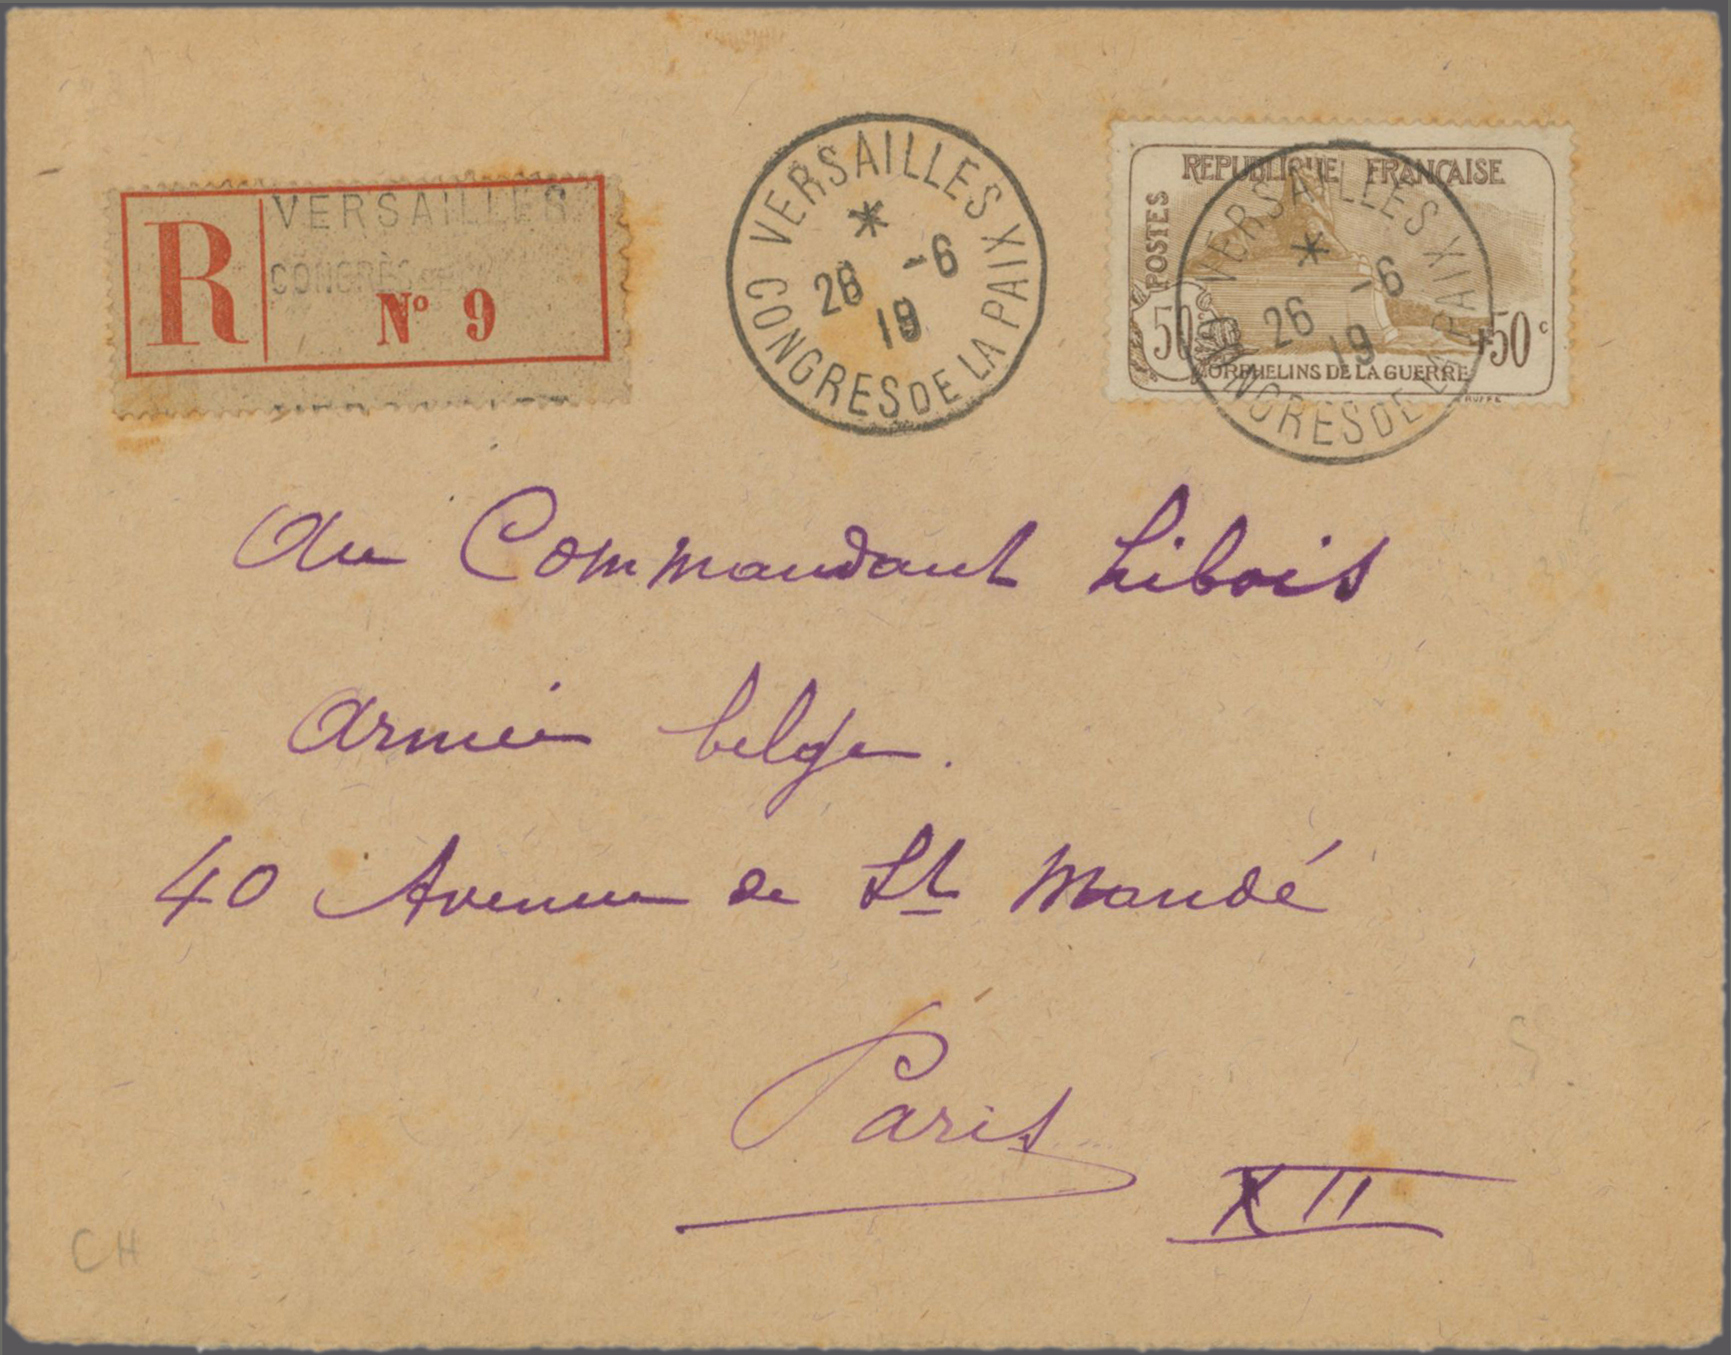 R
VERSAILLES
CONGRÈS
Nº 9
VERSAILLES
*
26 -6
19
CONGRES DE LA PAIX
REPUBLIQUE FRANÇAISE
POSTES
50
+50 c
ORPHELINS DE LA GUERRE
RUFFE
VERSAILLES
*
26 -6
19
CONGRES DE LA PAIX
Au Commandant Libois
Armée belge.
40 Avenue de St Mandé
Paris
XII
CH